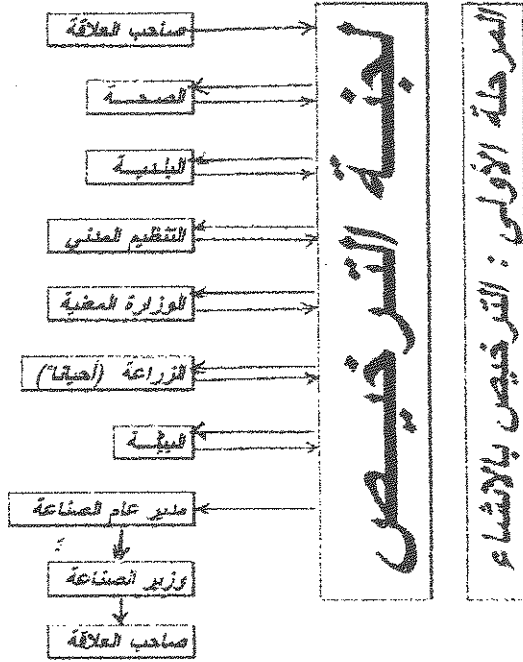 المرحلة الأولى : الترخيص بالانشاء
لجنة الترخيص
صاحب العلاقة
الصحة
البلدية
التنظيم المدني
الوزارة المعنية
الزراعة (أحياناً)
البيئة
مدير عام الصناعة
وزير الصناعة
صاحب العلاقة